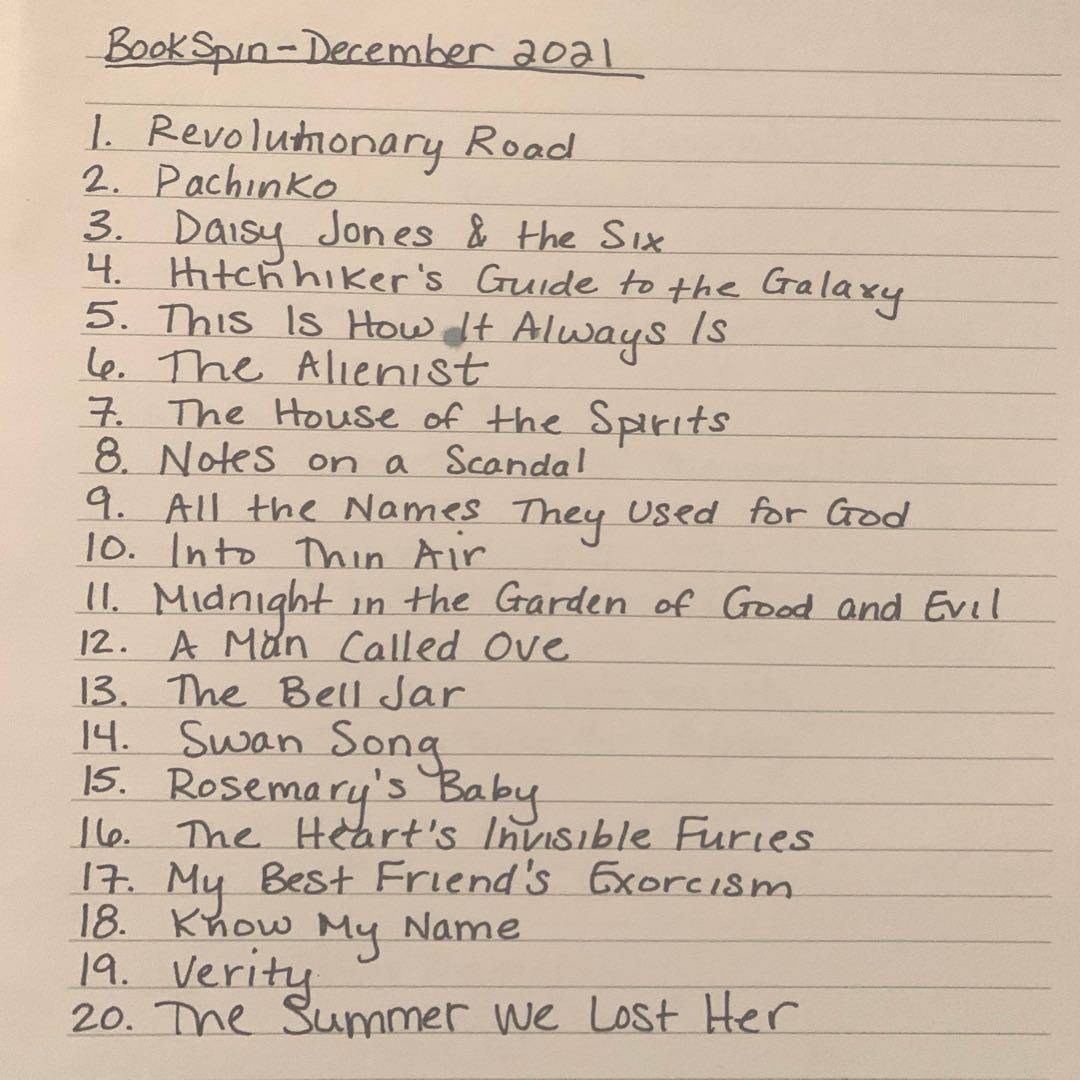 BookSpin-December 2021
1. Revolutionary Road
2. Pachinko
3. Daisy Jones & the Six
4. Hitchhiker's Guide to the Galaxy
5. This Is How It Always Is
6. The Alienist
7. The House of the Spirits
8. Notes on a Scandal
9. All the Names They Used for God
10. Into Thin Air
11. Midnight in the Garden of Good and Evil
12. A Man Called Ove
13. The Bell Jar
14. Swan Song
15. Rosemary's Baby
16. The Heart's Invisible Furies
17. My Best Friend's Exorcism
18. Know My Name
19. Verity
20. The Summer We Lost Her